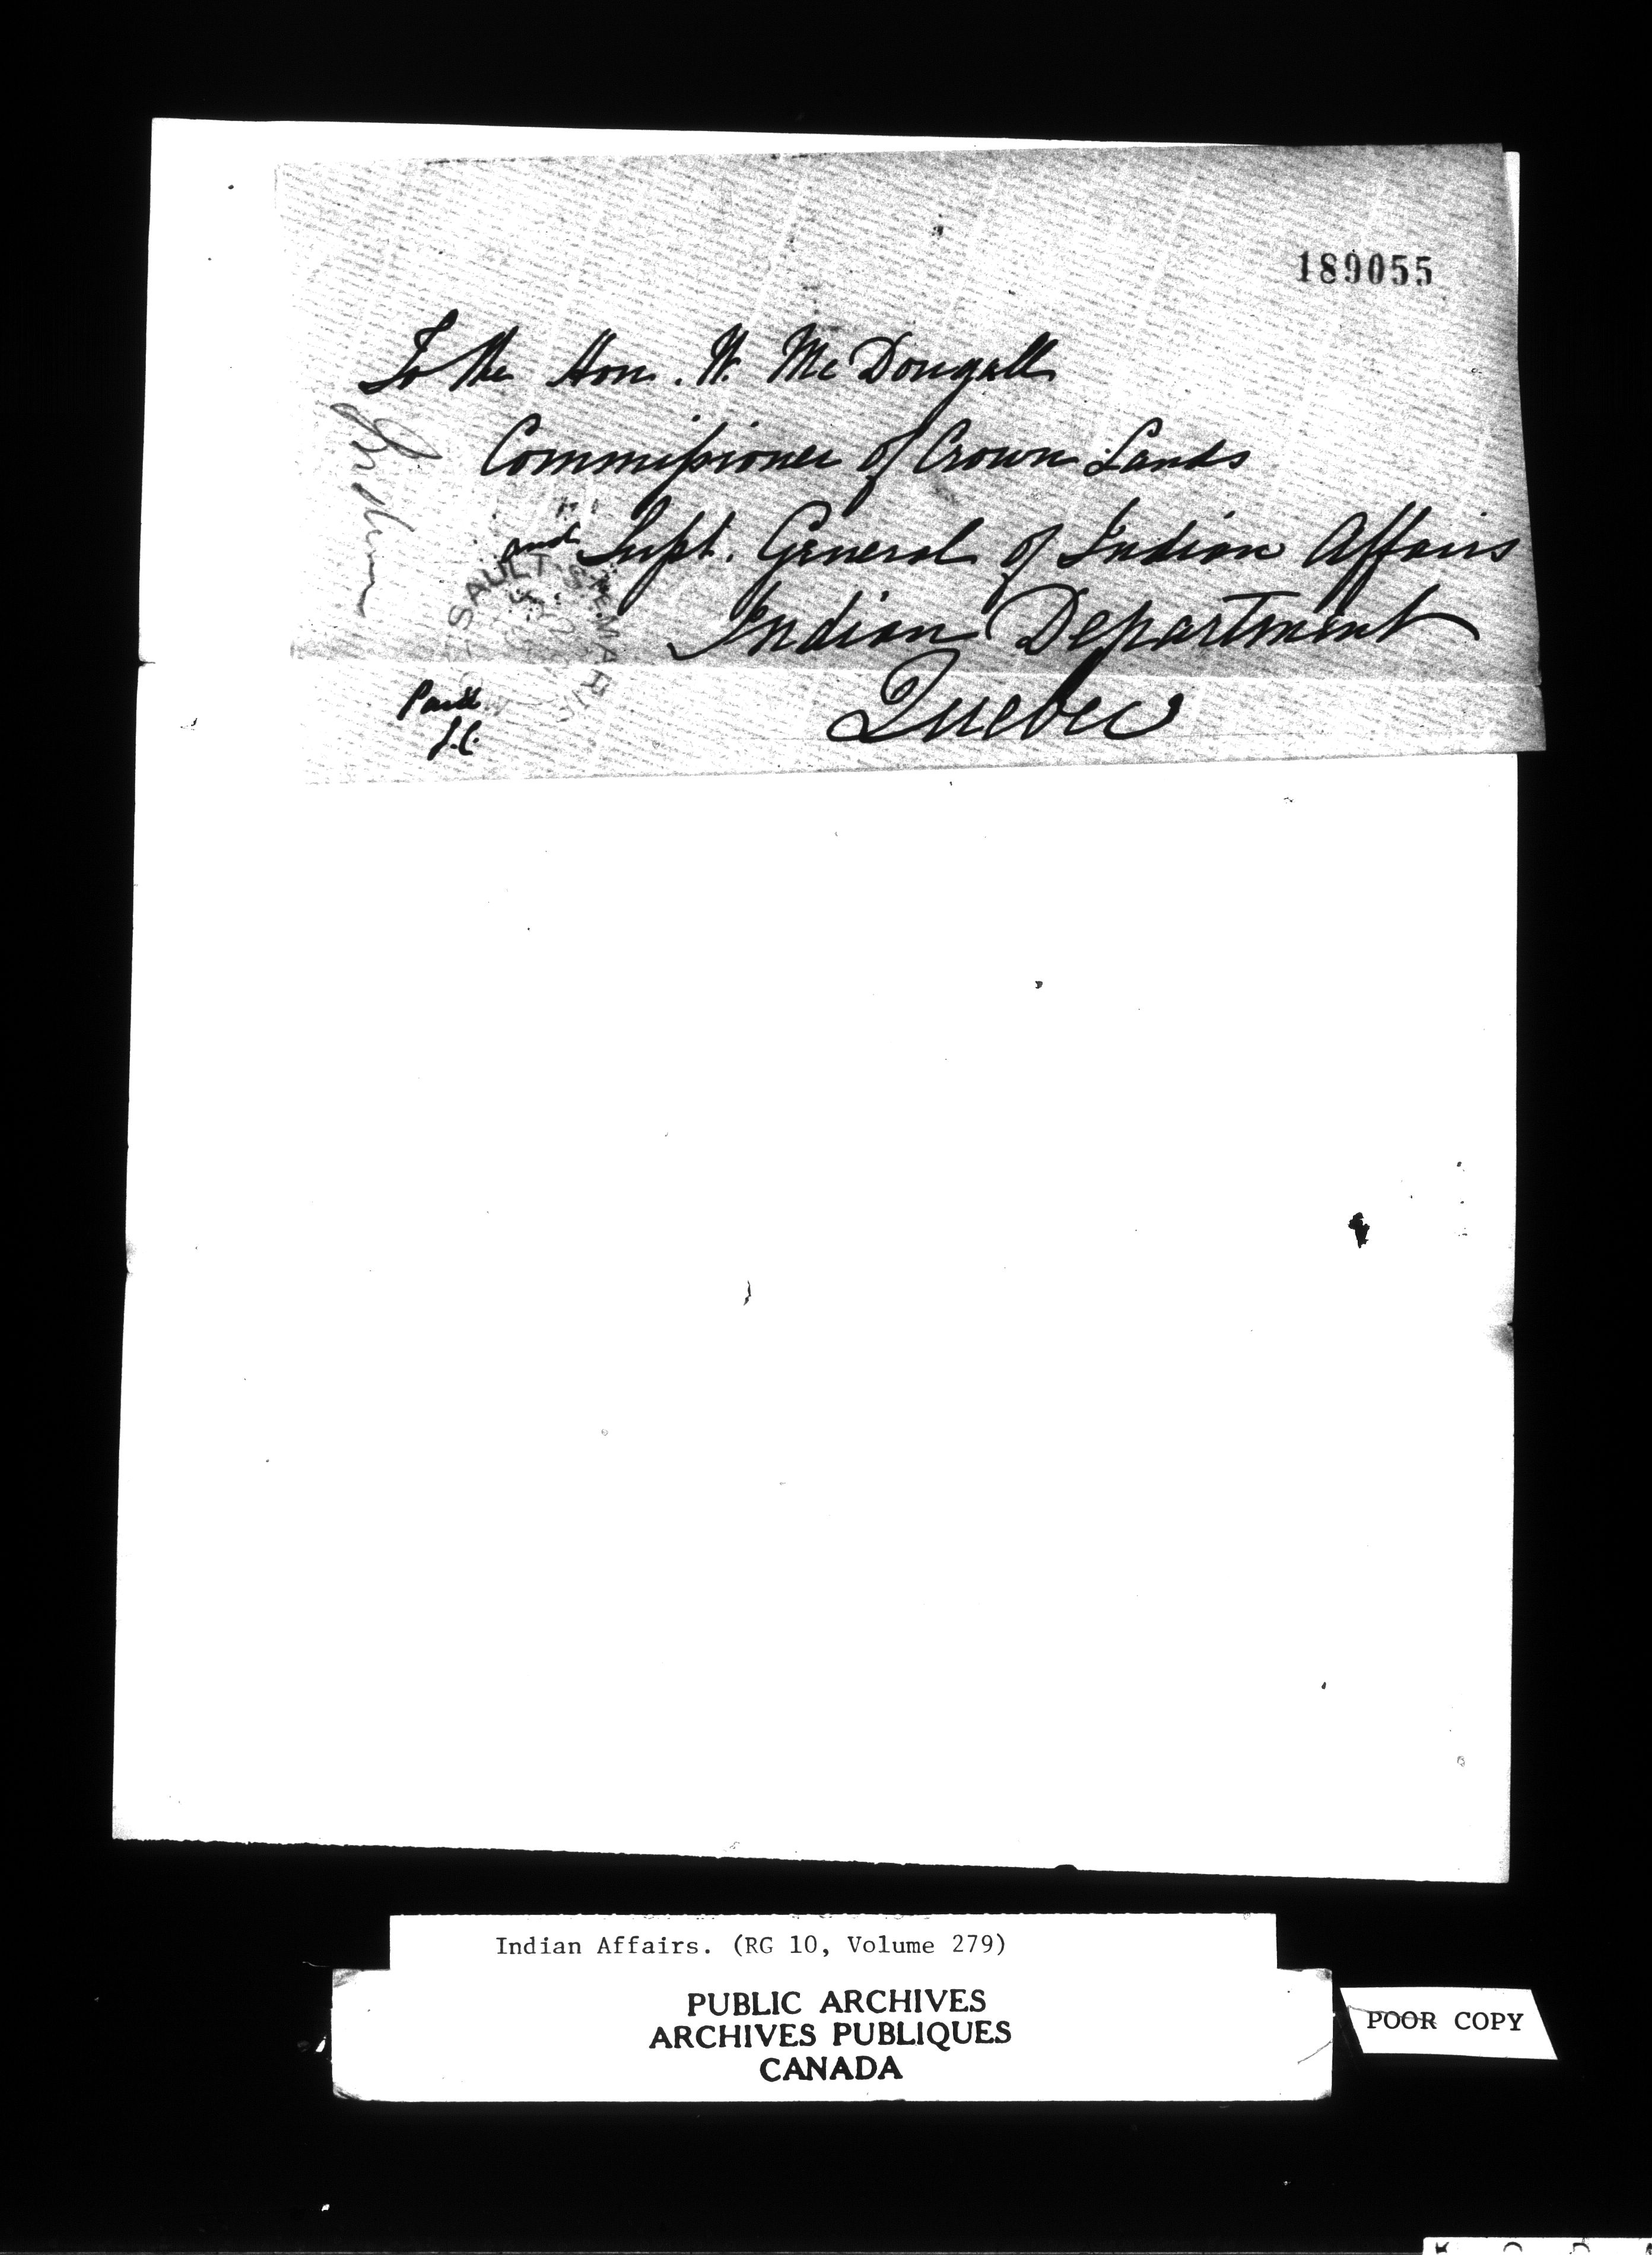 189055
To the Hon. W. McDougall
Commissioner of Crown Lands
and Supt. General of Indian Affairs
Indian Department
Quebec
Indian
SAULT STE MARIE
Paid
J.C.
Indian Affairs. (RG 10, Volume 279)
PUBLIC ARCHIVES
ARCHIVES PUBLIQUES
CANADA
POOR COPY